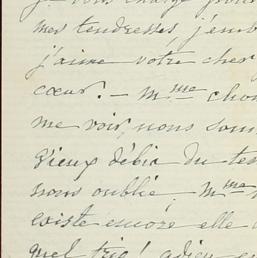 je vous charge
mes tendresses, j'em
j'aime votre cher
cœur. – Mme cho
me voir, nous som
vieux débis du te
nous oublié, Mme
existe encore elle
quel trio! adieu